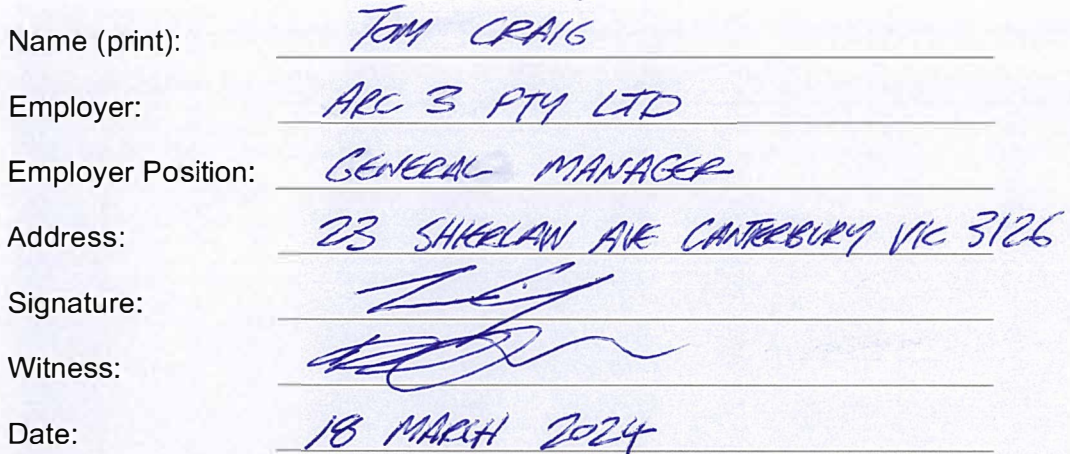 Name (print): TOM CRAIG
Employer: ARC 3 PTY LTD
Employer Position: GENERAL MANAGER
Address: 23 SHIERLAW AVE CANTERBURY VIC 3126
Signature:
Witness:
Date: 18 MARCH 2024